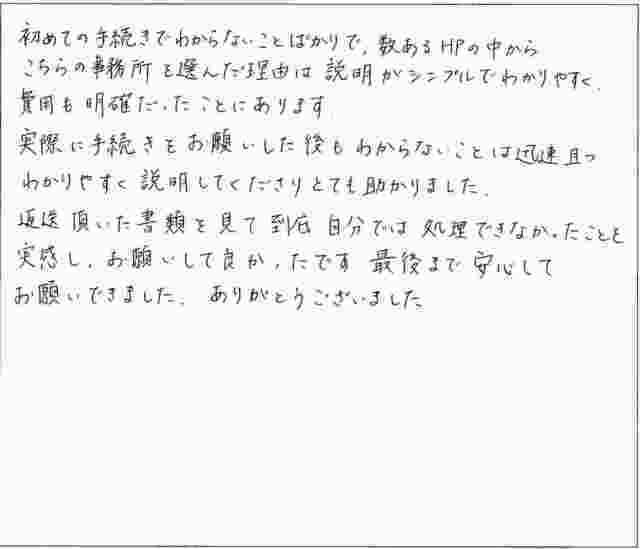 初めての手続きでわからないことばかりで、数あるHPの中から
こちらの事務所を選んだ理由は説明がシンプルでわかりやすく、
費用も明確だったことにあります
実際に手続きをお願いした後もわからないことは迅速且つ
わかりやすく説明してくださりとても助かりました。
返送頂いた書類を見て到底自分では処理できなかったことを
実感し、お願いして良かったです 最後まで安心して
お願いできました。ありがとうございました